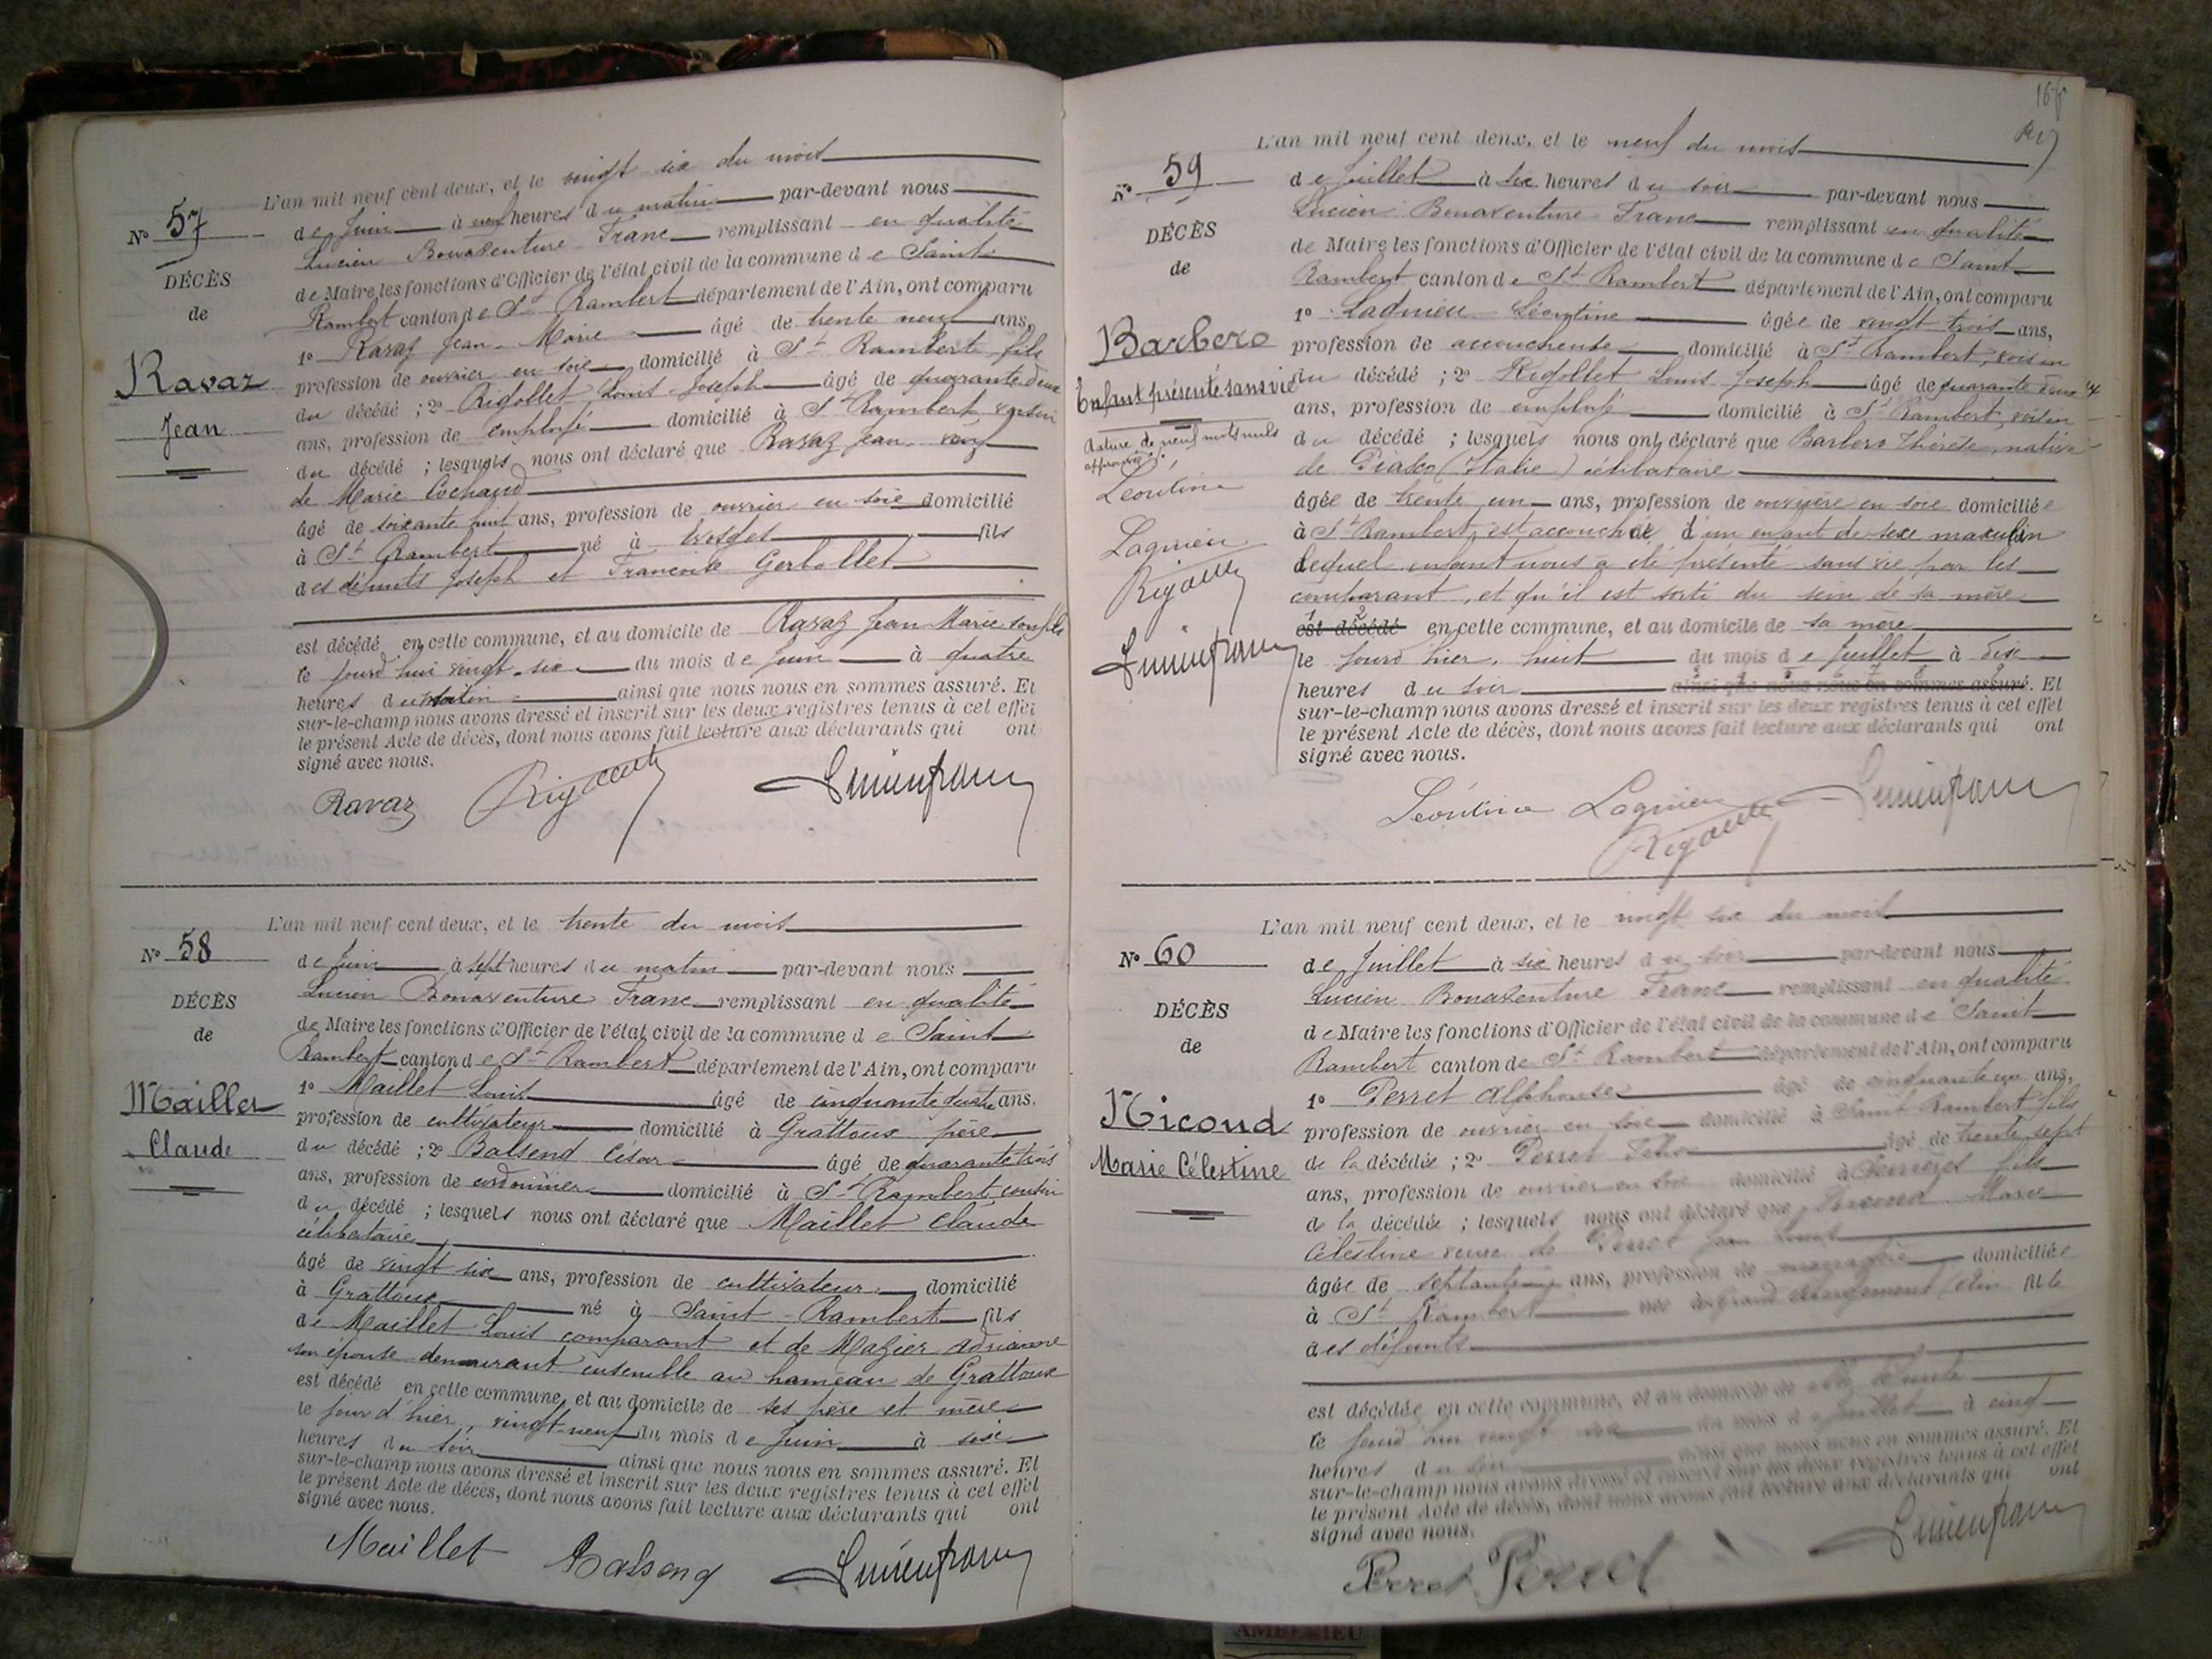 L'an mil neuf cent deux, et le vingt six du mois
N° 57
de Juin à neuf heures du matin par-devant nous
Lucien Bonaventure Franc remplissant en qualité
DÉCÈS
de Maire les fonctions d'Officier de l'état civil de la commune de Saint
de
Rambert canton de St Rambert département de l'Ain, ont comparu
1° Ravaz Jean-Marie âgé de trente neuf ans,
Ravaz
profession de ouvrier en soie domicilié à St Rambert, fils
du décédé ; 2° Rigollet Louis Joseph âgé de quarante deux
Jean
ans, profession de employé domicilié à St Rambert voisin
du décédé ; lesquels nous ont déclaré que Ravaz Jean veuf
de Marie Cochaud
âgé de soixante huit ans, profession de ouvrier en soie domicilié
à St Rambert né à fils
des défunts Joseph et Françoise Gerbollet
est décédé en cette commune, et au domicile de Ravaz Jean Marie son fils
le jourd'hui vingt six du mois de Juin à quatre
heures du matin ainsi que nous nous en sommes assuré. Et
sur-le-champ nous avons dressé et inscrit sur les deux registres tenus à cet effet
le présent Acte de décès, dont nous avons fait lecture aux déclarants qui ont
signé avec nous.
Ravaz
L'an mil neuf cent deux, et le trente du mois
N° 58
de Juin à sept heures du matin par-devant nous
Lucien Bonaventure Franc remplissant en qualité
DÉCÈS
de Maire les fonctions d'Officier de l'état civil de la commune de Saint
de
Rambert canton de St Rambert département de l'Ain, ont comparu
1° Maillet Louis âgé de cinquante quatre ans.
Maillet
profession de cultivateur domicilié à Grattoux père
Claude
du décédé ; 2° Balsend César âgé de quarante trois
ans, profession de cordonnier domicilié à St Rambert, cousin
du décédé ; lesquels nous ont déclaré que Maillet Claude
célibataire
âgé de vingt six ans, profession de cultivateur domicilié
à Grattoux né à Saint-Rambert fils
de Maillet Louis comparant et de Mazier Adrianne
son épouse demeurant ensemble au hameau de Grattoux
est décédé en cette commune, et au domicile de ses père et mère
le jour d'hier, vingt-neuf du mois de Juin à six
heures du soir ainsi que nous nous en sommes assuré. Et
sur-le-champ nous avons dressé et inscrit sur les deux registres tenus à cet effet
le présent Acte de décès, dont nous avons fait lecture aux déclarants qui ont
signé avec nous.
Maillet Balsend Lucien franc
L'an mil neuf cent deux, et le neuf du mois
N° 59
de Juillet à six heures du soir par-devant nous
Lucien Bonaventure Franc remplissant en qualité
DÉCÈS
de Maire les fonctions d'Officier de l'état civil de la commune de Saint
de
Rambert canton de St Rambert département de l'Ain, ont comparu
1° Lagnieu Léontine âgée de vingt trois ans,
Barbero
profession de accoucheuse domicilié à St Rambert, voisin
Enfant présenté sans vie
du décédé ; 2° Rigollet Louis Joseph âgé de quarante deux
ans, profession de employé domicilié à St Rambert, voisin
Rature de neuf mots nuls
approuvée
du décédé ; lesquels nous ont déclaré que Barbero Thérèse, native
de Piasco (Italie) célibataire
Léontine
âgée de trente un ans, profession de ouvrière en soie domiciliée
Lagnieu
à St Rambert, est accouchée d'un enfant de sexe masculin
lequel enfant nous a été présenté sans vie par les
comparant, et qu'il est sorti du sein de sa mère
Lucien franc
est décédé en cette commune, et au domicile de sa mère
le jourd'hier, huit du mois de Juillet à dix
heures du soir ainsi que nous nous en sommes assuré. Et
sur-le-champ nous avons dressé et inscrit sur les deux registres tenus à cet effet
le présent Acte de décès, dont nous avons fait lecture aux déclarants qui ont
signé avec nous.
Léontine Lagnieu Lucien franc
L'an mil neuf cent deux, et le vingt six du mois
N° 60
de Juillet à six heures du soir par-devant nous
Lucien Bonaventure Franc remplissant en qualité
DÉCÈS
de Maire les fonctions d'Officier de l'état civil de la commune de Saint
de
Rambert canton de St Rambert département de l'Ain, ont comparu
1° Perret Alphonse âgé de cinquante un ans,
Nicoud
profession de ouvrier en soie domicilié à Saint Rambert fils
Marie Célestine
de la décédée ; 2° Perret âgé de trente sept
ans, profession de ouvrier en soie domicilié à fils
de la décédée ; lesquels nous ont déclaré que Nicoud Marie
Célestine veuve de Perret Jean
âgée de ans, profession de domiciliée
à St Rambert née à Grand fille
des défunts
est décédée en cette commune, et au domicile de
le jourd'hui vingt six du mois de Juillet à cinq
heures du soir ainsi que nous nous en sommes assuré. Et
sur-le-champ nous avons dressé et inscrit sur les deux registres tenus à cet effet
le présent Acte de décès, dont nous avons fait lecture aux déclarants qui ont
signé avec nous.
Perret Perret Lucien franc